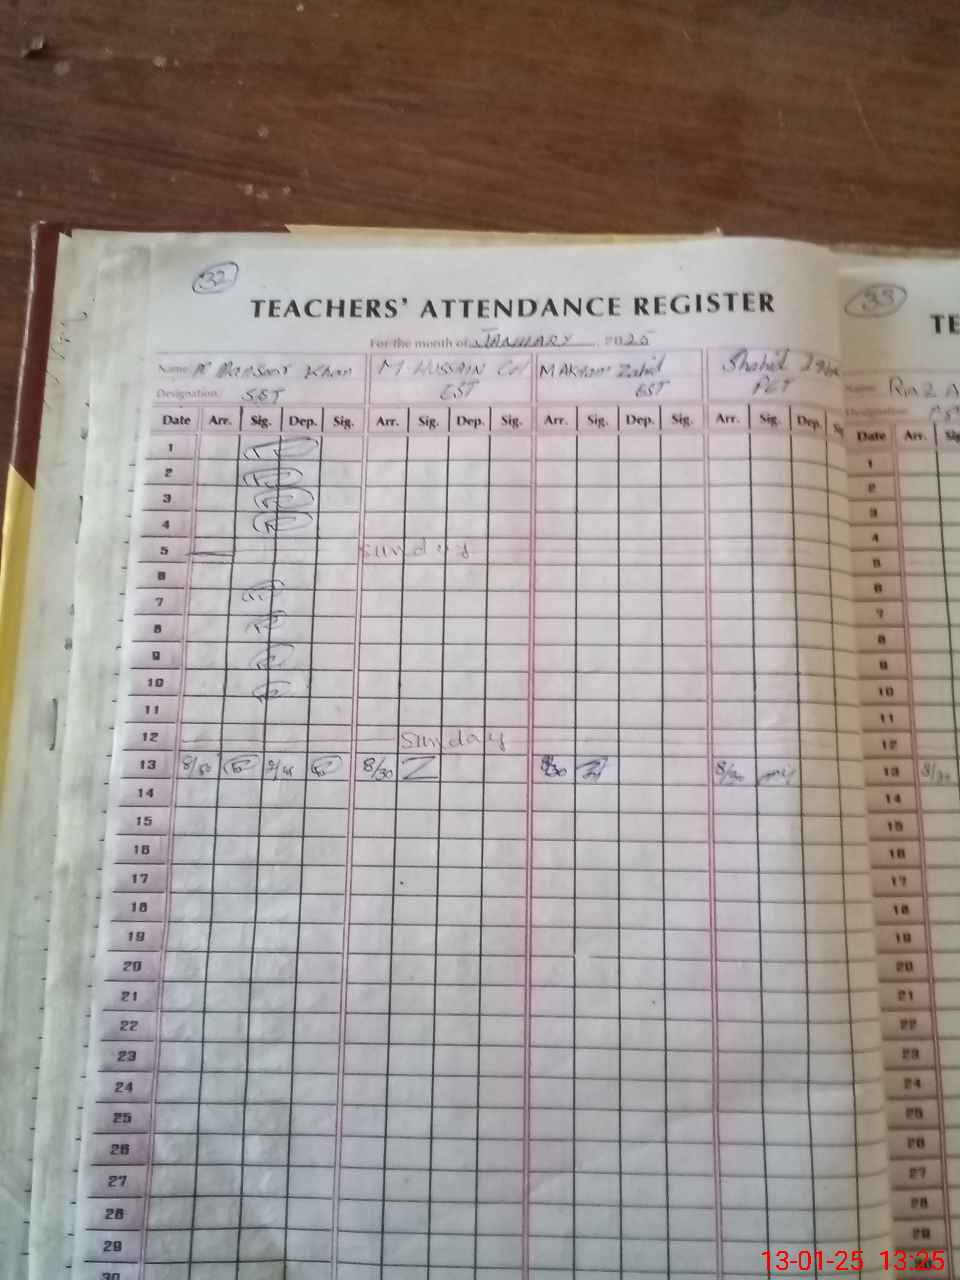 32
TEACHERS' ATTENDANCE REGISTER
For the month of JANUARY 2025
Name Mansoor Khan M. HUSSAIN M AKram Zahid Shahid
Designation: SST EST EST PET
Date Arr. Sig. Dep. Sig. Arr. Sig. Dep. Sig. Arr. Sig. Dep. Sig. Arr. Sig. Dep.
1
2
3
4
5 Sunday
6
7
8
9
10
11
12 Sunday
13 8/30 8/30 8/30 8/30
14
15
16
17
18
19
20
21
22
23
24
25
26
27
28
29
30
33
TE
Date Arr.
1
2
3
4
5
6
7
8
9
10
11
12
13 8/30
14
15
16
17
18
19
20
21
22
23
24
25
26
27
28
29
13-01-25 13:25